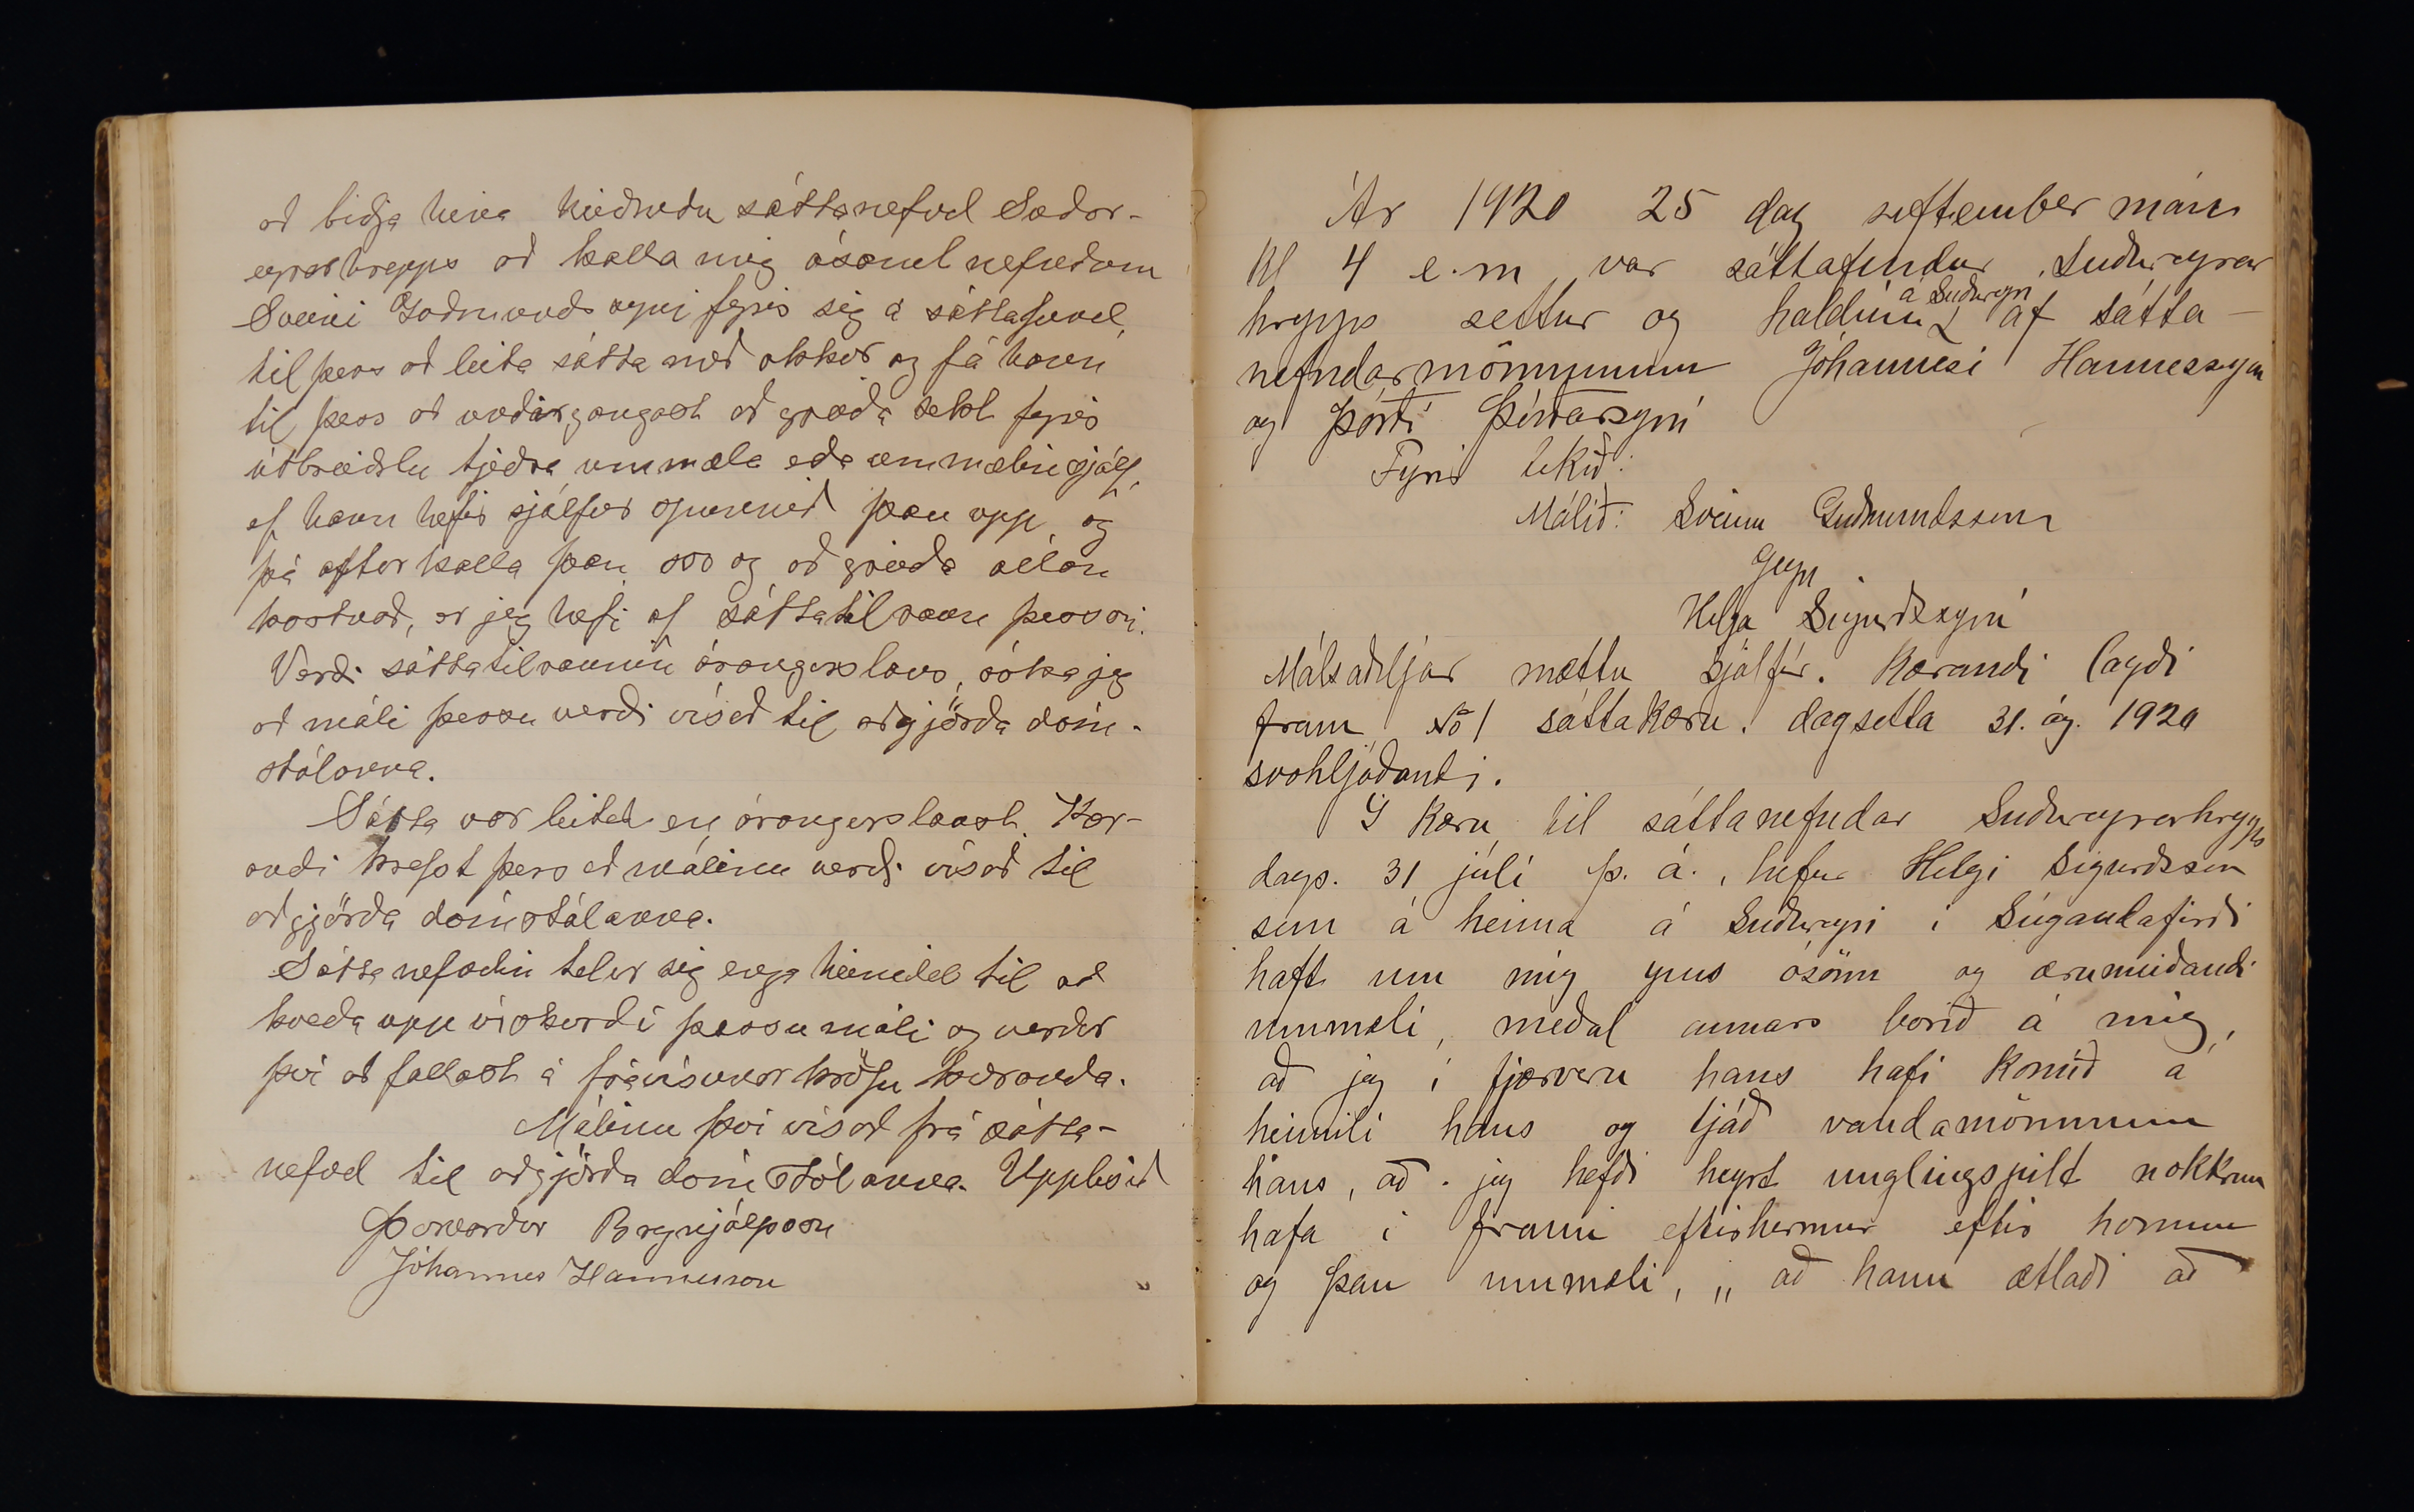 að biðja hina heiðruðu sáttanefnd Suður-
eyrarhrepps að kalla mig ásamt nefndum
Sveini Guðmundssyni fyrir sig á sáttafund,
til þess að leita sátta með okkur og fá hann
til þess að undirgangast að greiða sekt fyrir
útbreiðslu tjeðra ummæla eða ummælin sjálf,
ef hann hefir sjálfur spunnið þau upp og
þá afturkalla þau svo og að greiða allan
kostnað, er jeg hefi af sáttatilraun þessari.
Verði sáttatilraunin árangurslaus, óska jeg
að máli þessu verði vísað til aðgjörða dóm-
stólanna.
Sátta var leitað en árangurslaust. Kær-
andi krefst þess að málinu verði vísað til
aðgjörða dómstólanna.
Sáttanefndin telur sig enga heimild til að
kveða upp úrskurð í þessu máli og verður
því að fallast á frávísunar kröfu kæranda.
Málinu því vísað frá sátta-
nefnd til aðgjörða dómstólanna. Upplesið
Þorvarður Brynjólfsson
Jóhannes Hannesson
Ár 1920 25 dag september mán
kl 4 e.m var sáttafundur Suðureyrar
hrepps settur og haldinn á Suðureyri af sátta-
nefndarmönnunum Jóhannesi Hannessyni
og Þórði Þórðarsyni
Fyrir tekið:
Málið: Sveinn Guðmundsson
Gegn
Helga Sigurðssyni
Málsaðiljar mættu sjálfir. Kærandi lagði
fram No 1 sáttakæru. dagsetta 31. ág. 1920
svohljóðandi.
Í Kæru til sáttanefndar Suðureyrarhrepps
dags. 31 júlí þ. á., hefur Helgi Sigurðsson
sem á heima á Suðureyri í Súgandafirði
haft um mig ýms ósönn og ærumeiðandi
ummæli, meðal annars borið á mig,
að jeg í fjærveru hans hafi komið á
heimili hans og tjáð vandamönnum
hans, að jeg hefði heyrt unglingspilt nokkrum
hafa í frammi eftirhermur eftir honum
og þau ummæli, „að hann ætlaði að